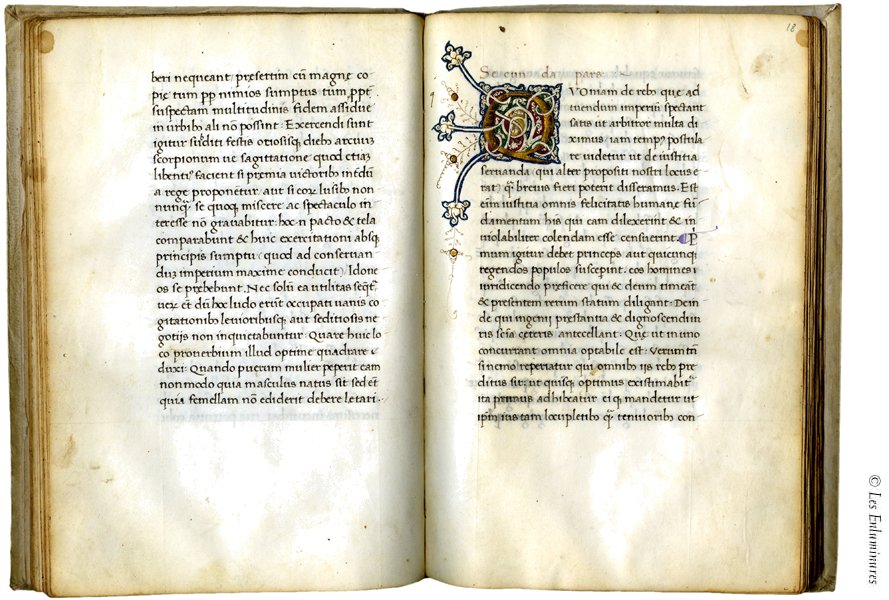 beri nequeant, presertim cū magnę co
pię tum pp nimios sumptus tum ppt
suspectam multitudinis fidem assidue
in urbibo ali nō possint. Exercendi sunt
igitur subditi festis otiosisq; diebo arcuū
scorpionum ue sagittatione quod etiā
libentiꝰ facient si premia uictoribo in edū
a rege proponētur, aut si eorͅ lusibo non
nunq̄ se quoq; miscere ac spectaculo in
teresse nō grauabitur. hoc n pacto & tela
comparabunt & huic exercitationi absq;
principis sumptu, quod ad conseruan
dū imperium maxime conducit, Idone
os se prebebunt. Nec solū ea utilitas seqt
uerͅ et dū hoc ludo erūt occupati uanis co
gitationibo leuioribusq; aut seditiosis ne
gotijs non inquietabuntur. Quare huic lo
co prouerbium illud optime quadrare
duxi. Quando puerum mulier peperit eam
non modo quia masculus natus sit sed et
quia femellam nō ediderit debere letari.
18
Secunda pars
QVOniam de rebo que ad
tuendum imperiū spectant
satis ut arbitror multa di
ximus, iam tempꝰ postula
re uidetur ut de iustitia
seruanda, qui alter propositi nostri locus e
rat, q̄ breuius fieri poterit disseramus. Est
eīm iustitia omnis felicitatis humanę fū
damentum his qui eam dilexerint & in
uiolabiliter colendam esse censuerint. P
mum igitur debet princeps aut quicunq;
regendos populos susceperint, eos homines i
iuridicendo preficere qui & deum timeāt
& presentem rerum statum diligant. Dein
de qui ingenij prestantia & dignoscendi iu
ris sciā ceteris antecellant. Que ut in uno
concurrant omnia optabile est. Verum tn̄
si nemo reperiatur qui omnibo ijs rebo pre
ditus sit, ut quisq; optimus existimabit
ita primus adhibeatur ei q; mandetur ut
ipm ius tam locupletibo q̄ tenuioribo con
© Les Enluminures